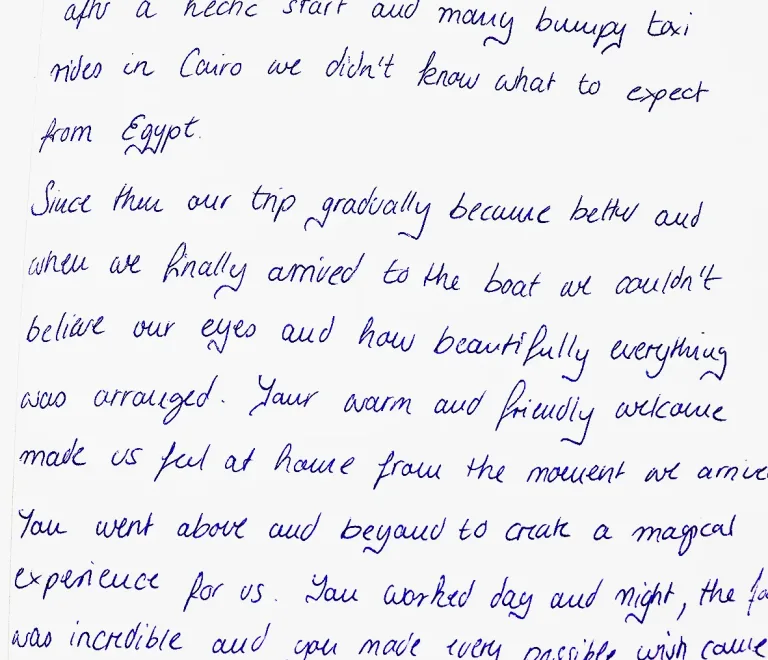 after a hectic start and many bumpy taxi
rides in Cairo we didn't know what to expect
from Egypt.
Since then our trip gradually became better and
when we finally arrived to the boat we couldn't
believe our eyes and how beautifully everything
was arranged. Your warm and friendly welcome
made us feel at home from the moment we arrive
You went above and beyond to create a magical
experience for us. You worked day and night, the fo
was incredible and you made every possible wish came